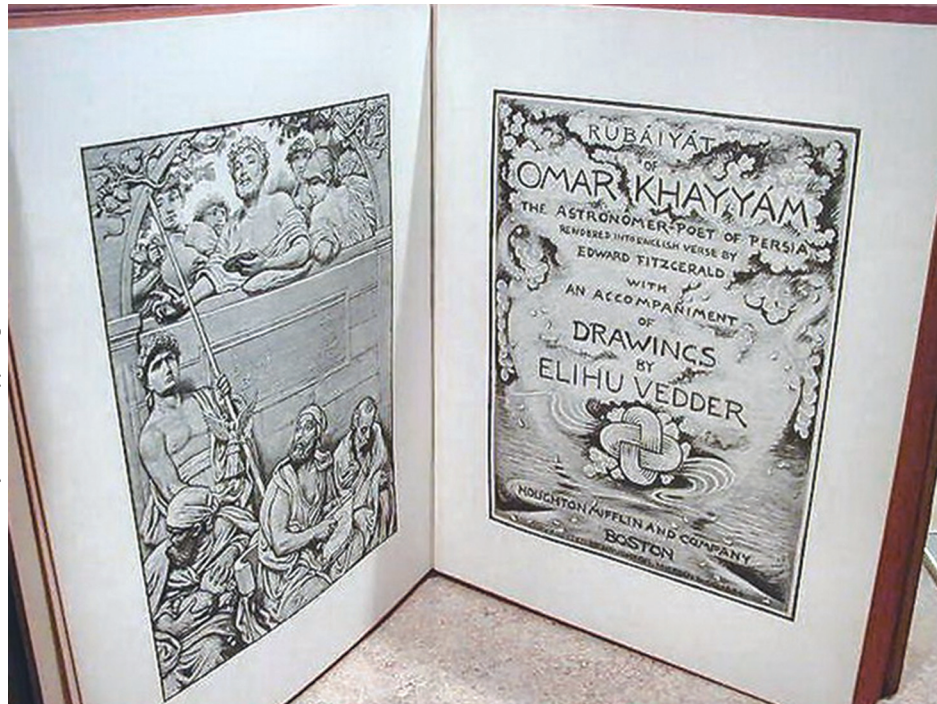 RUBÁIYÁT
OF
OMAR KHAYYÁM
THE ASTRONOMER-POET OF PERSIA
RENDERED INTO ENGLISH VERSE BY
EDWARD FITZGERALD
WITH
AN ACCOMPANIMENT
OF
DRAWINGS
BY
ELIHU VEDDER
HOUGHTON MIFFLIN AND COMPANY
BOSTON